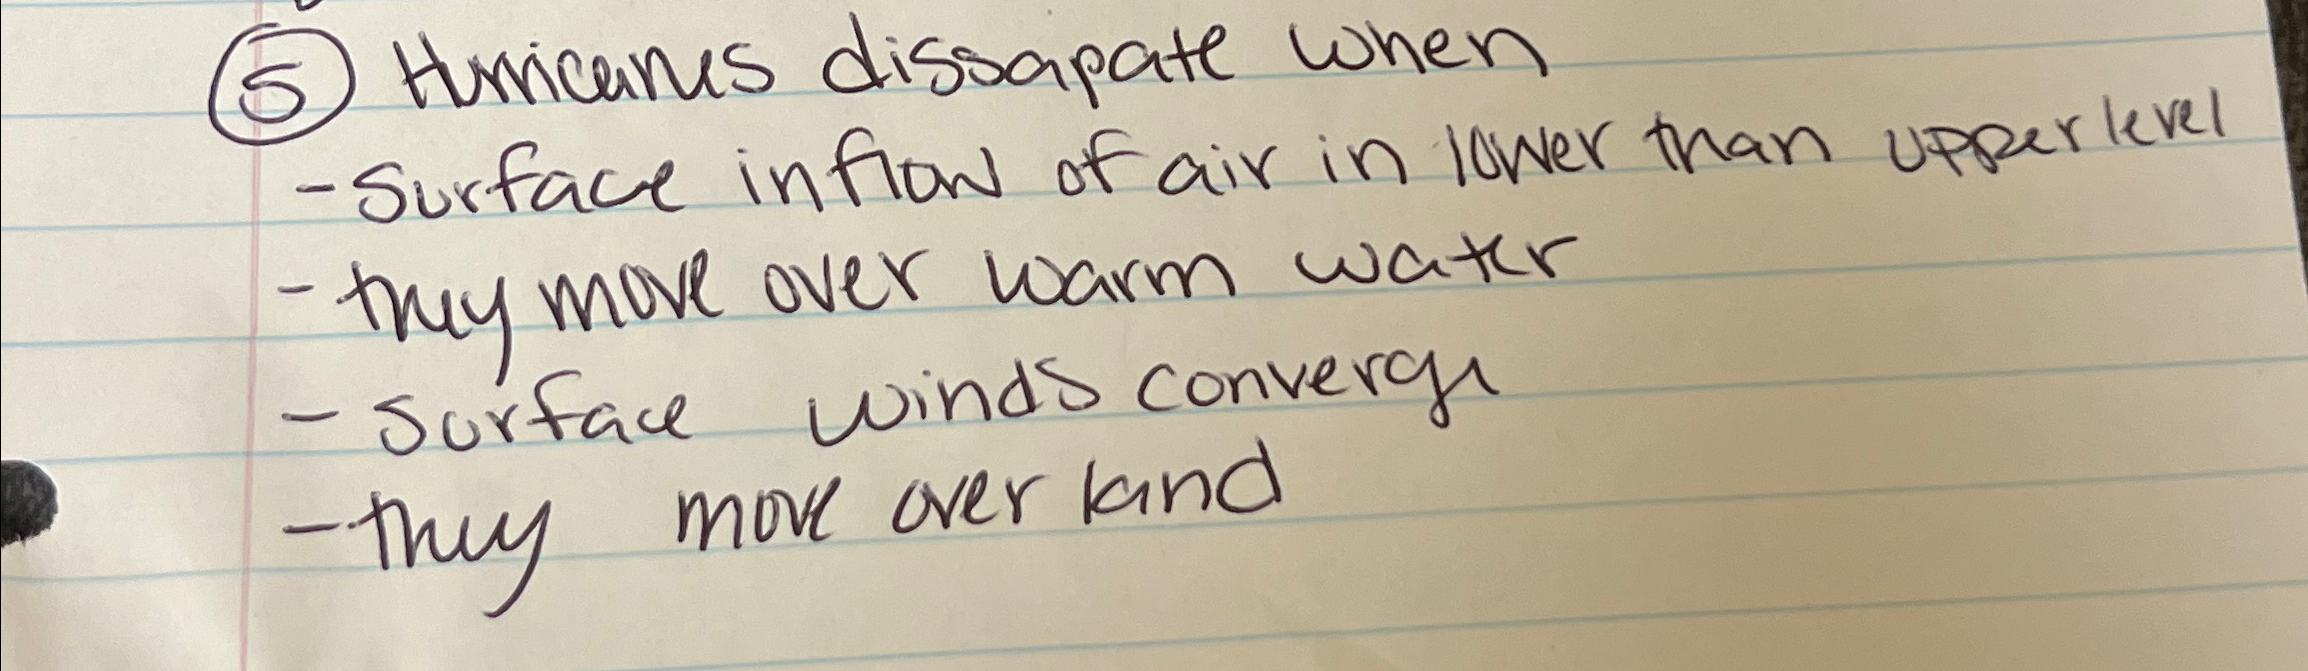 ⑤ Hurricanes dissapate when
- Surface inflow of air in lower than upper level
- they move over warm water
- surface winds converge
- they move over land